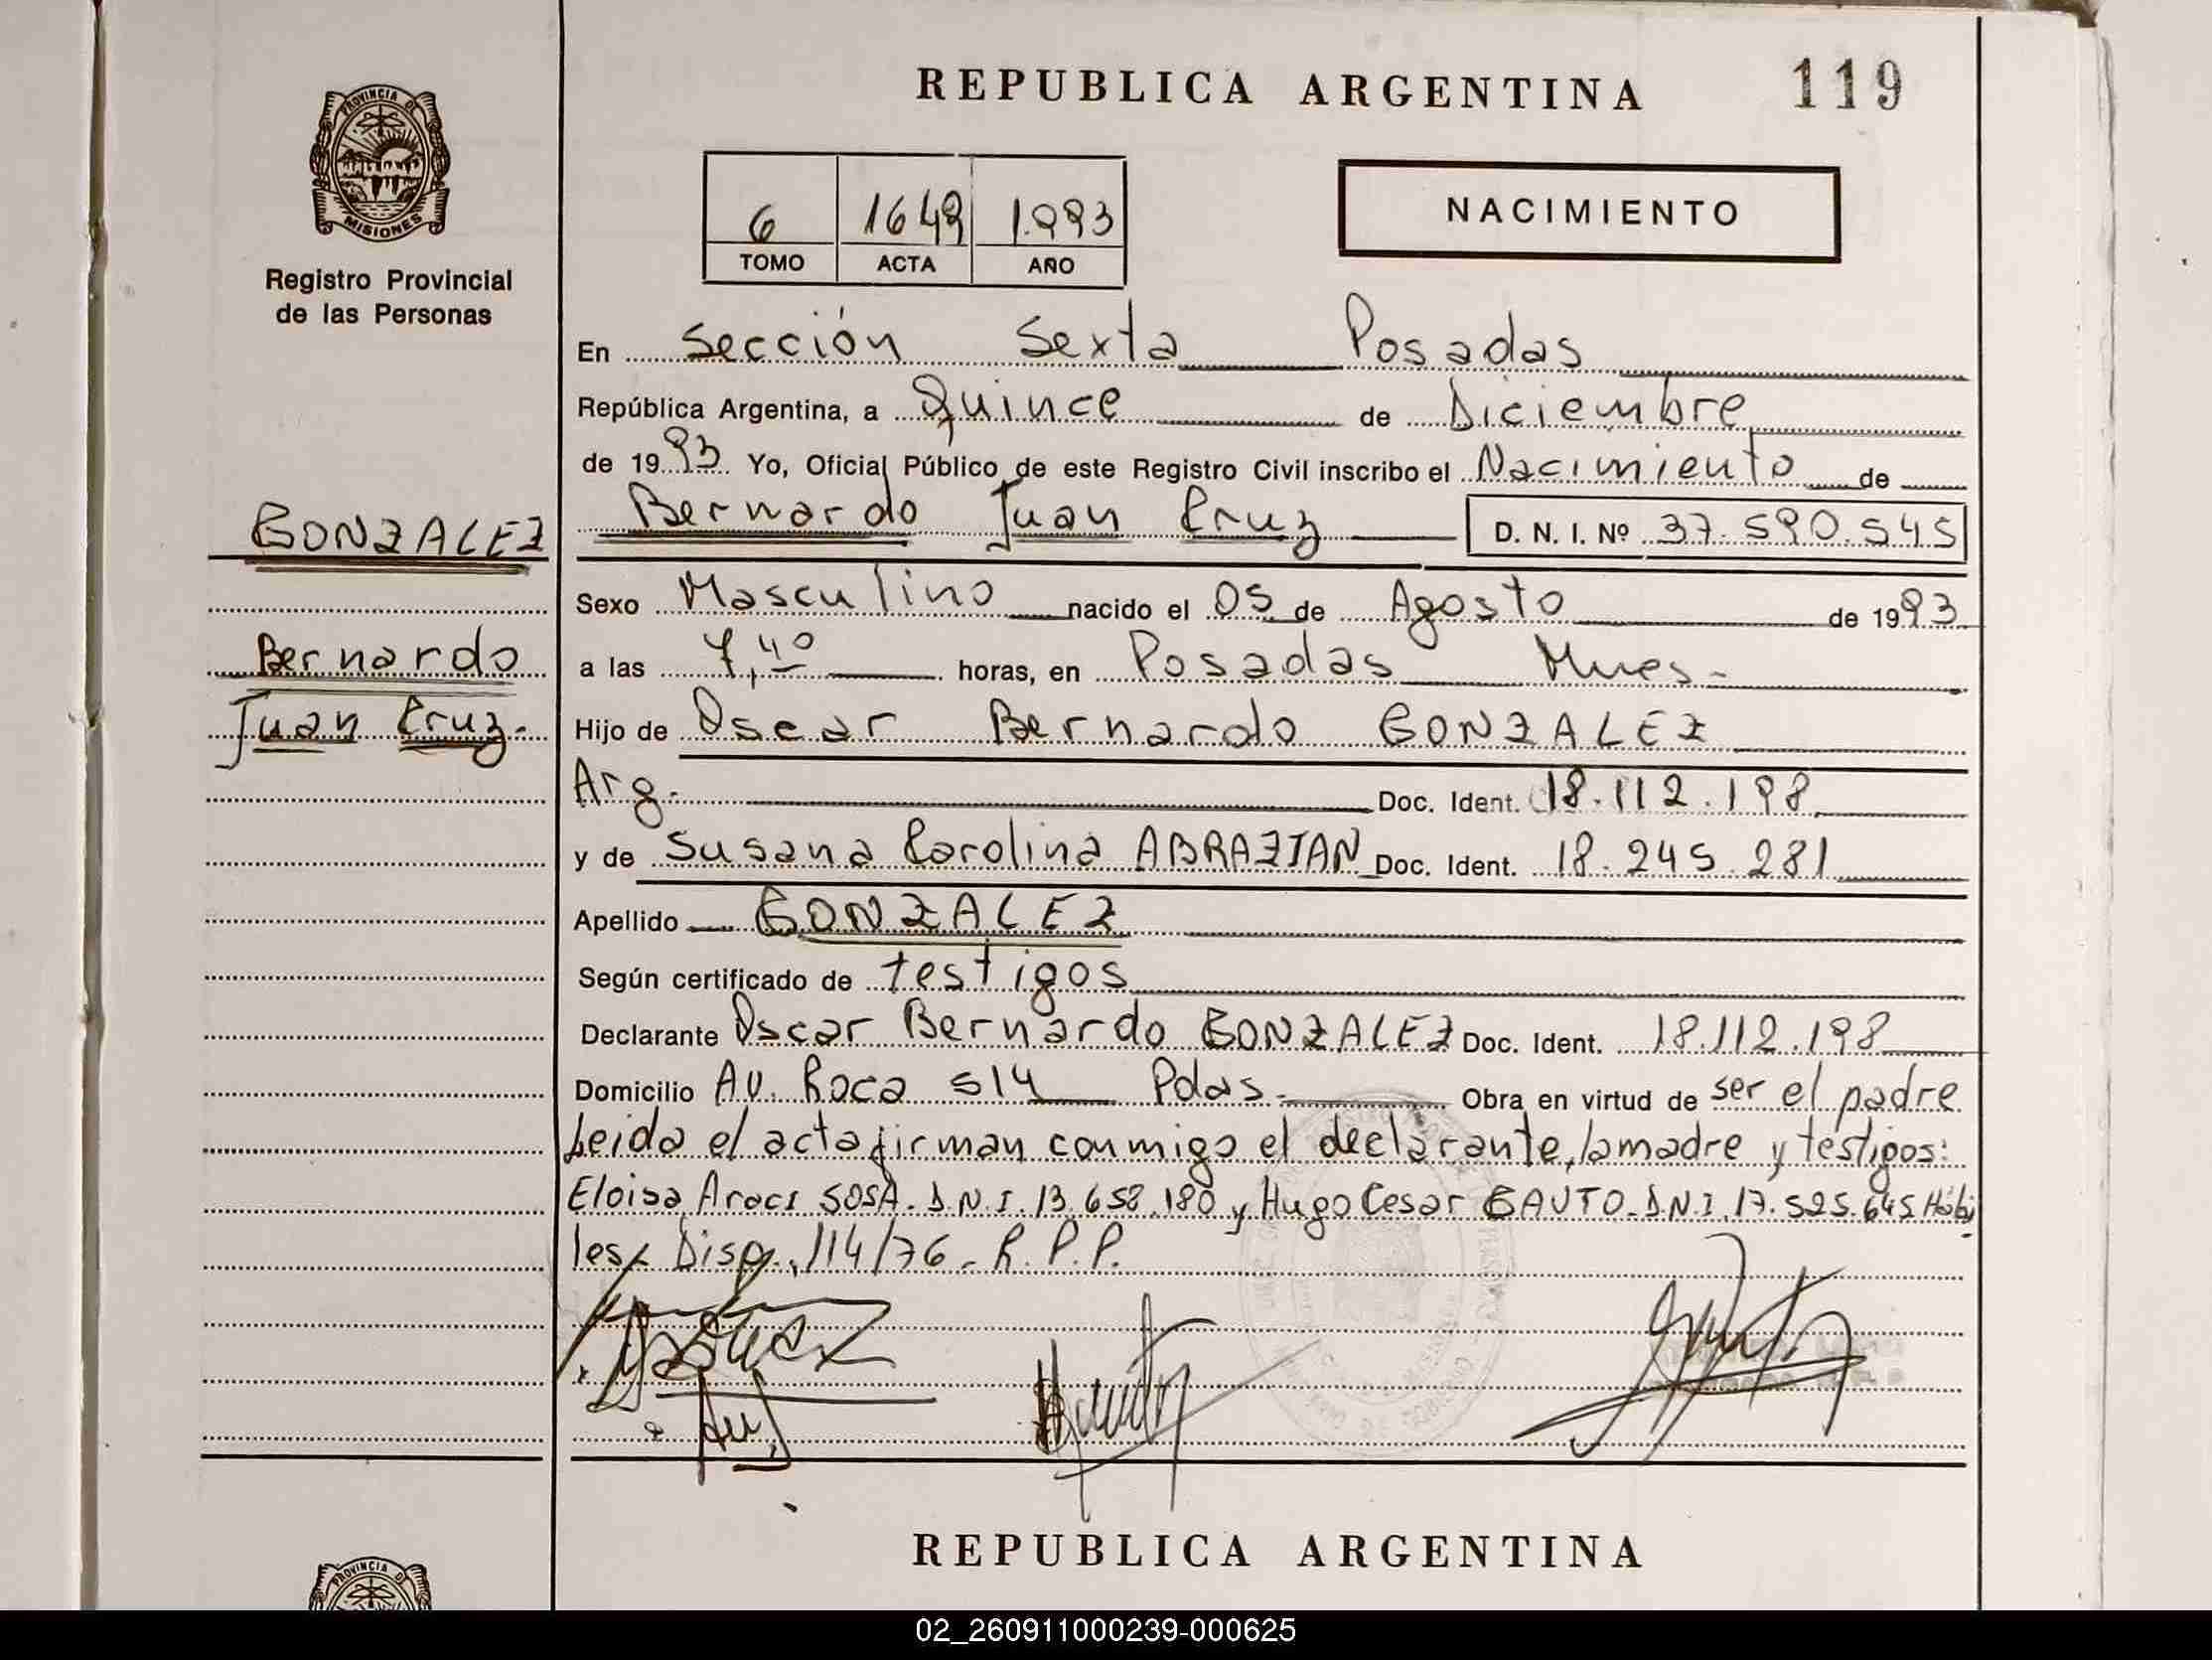 REPUBLICA ARGENTINA
119
PROVINCIA DE
MISIONES
Registro Provincial
de las Personas
6 1649 1.993
TOMO ACTA AÑO
NACIMIENTO
En Sección Sexta Posadas
República Argentina, a Quince de Diciembre
de 1993 Yo, Oficial Público de este Registro Civil inscribo el Nacimiento de
Bernardo Juan Cruz D. N. I. Nº 37.590.545
GONZALEZ
Bernardo
Juan Cruz.
Sexo Masculino nacido el 05 de Agosto de 1993
a las 7,40 horas, en Posadas Mnes-
Hijo de Oscar Bernardo GONZALEZ
Arg. Doc. Ident. 18.112.198
y de Susana Carolina ABRAZIAN Doc. Ident. 18.245.281
Apellido GONZALEZ
Según certificado de testigos
Declarante Oscar Bernardo GONZALEZ Doc. Ident. 18.112.198
Domicilio Av. Roca 514 Pdas. Obra en virtud de ser el padre
Leida el acta firman conmigo el declarante, la madre y testigos:
Eloisa Araci SOSA. D.N.I. 13.658.180 y Hugo Cesar GAUTO. D.N.I. 17.525.645 Hábi
les/ Disp. 114/76 - R.P.P.
REPUBLICA ARGENTINA
PROVINCIA DE
02_260911000239-000625